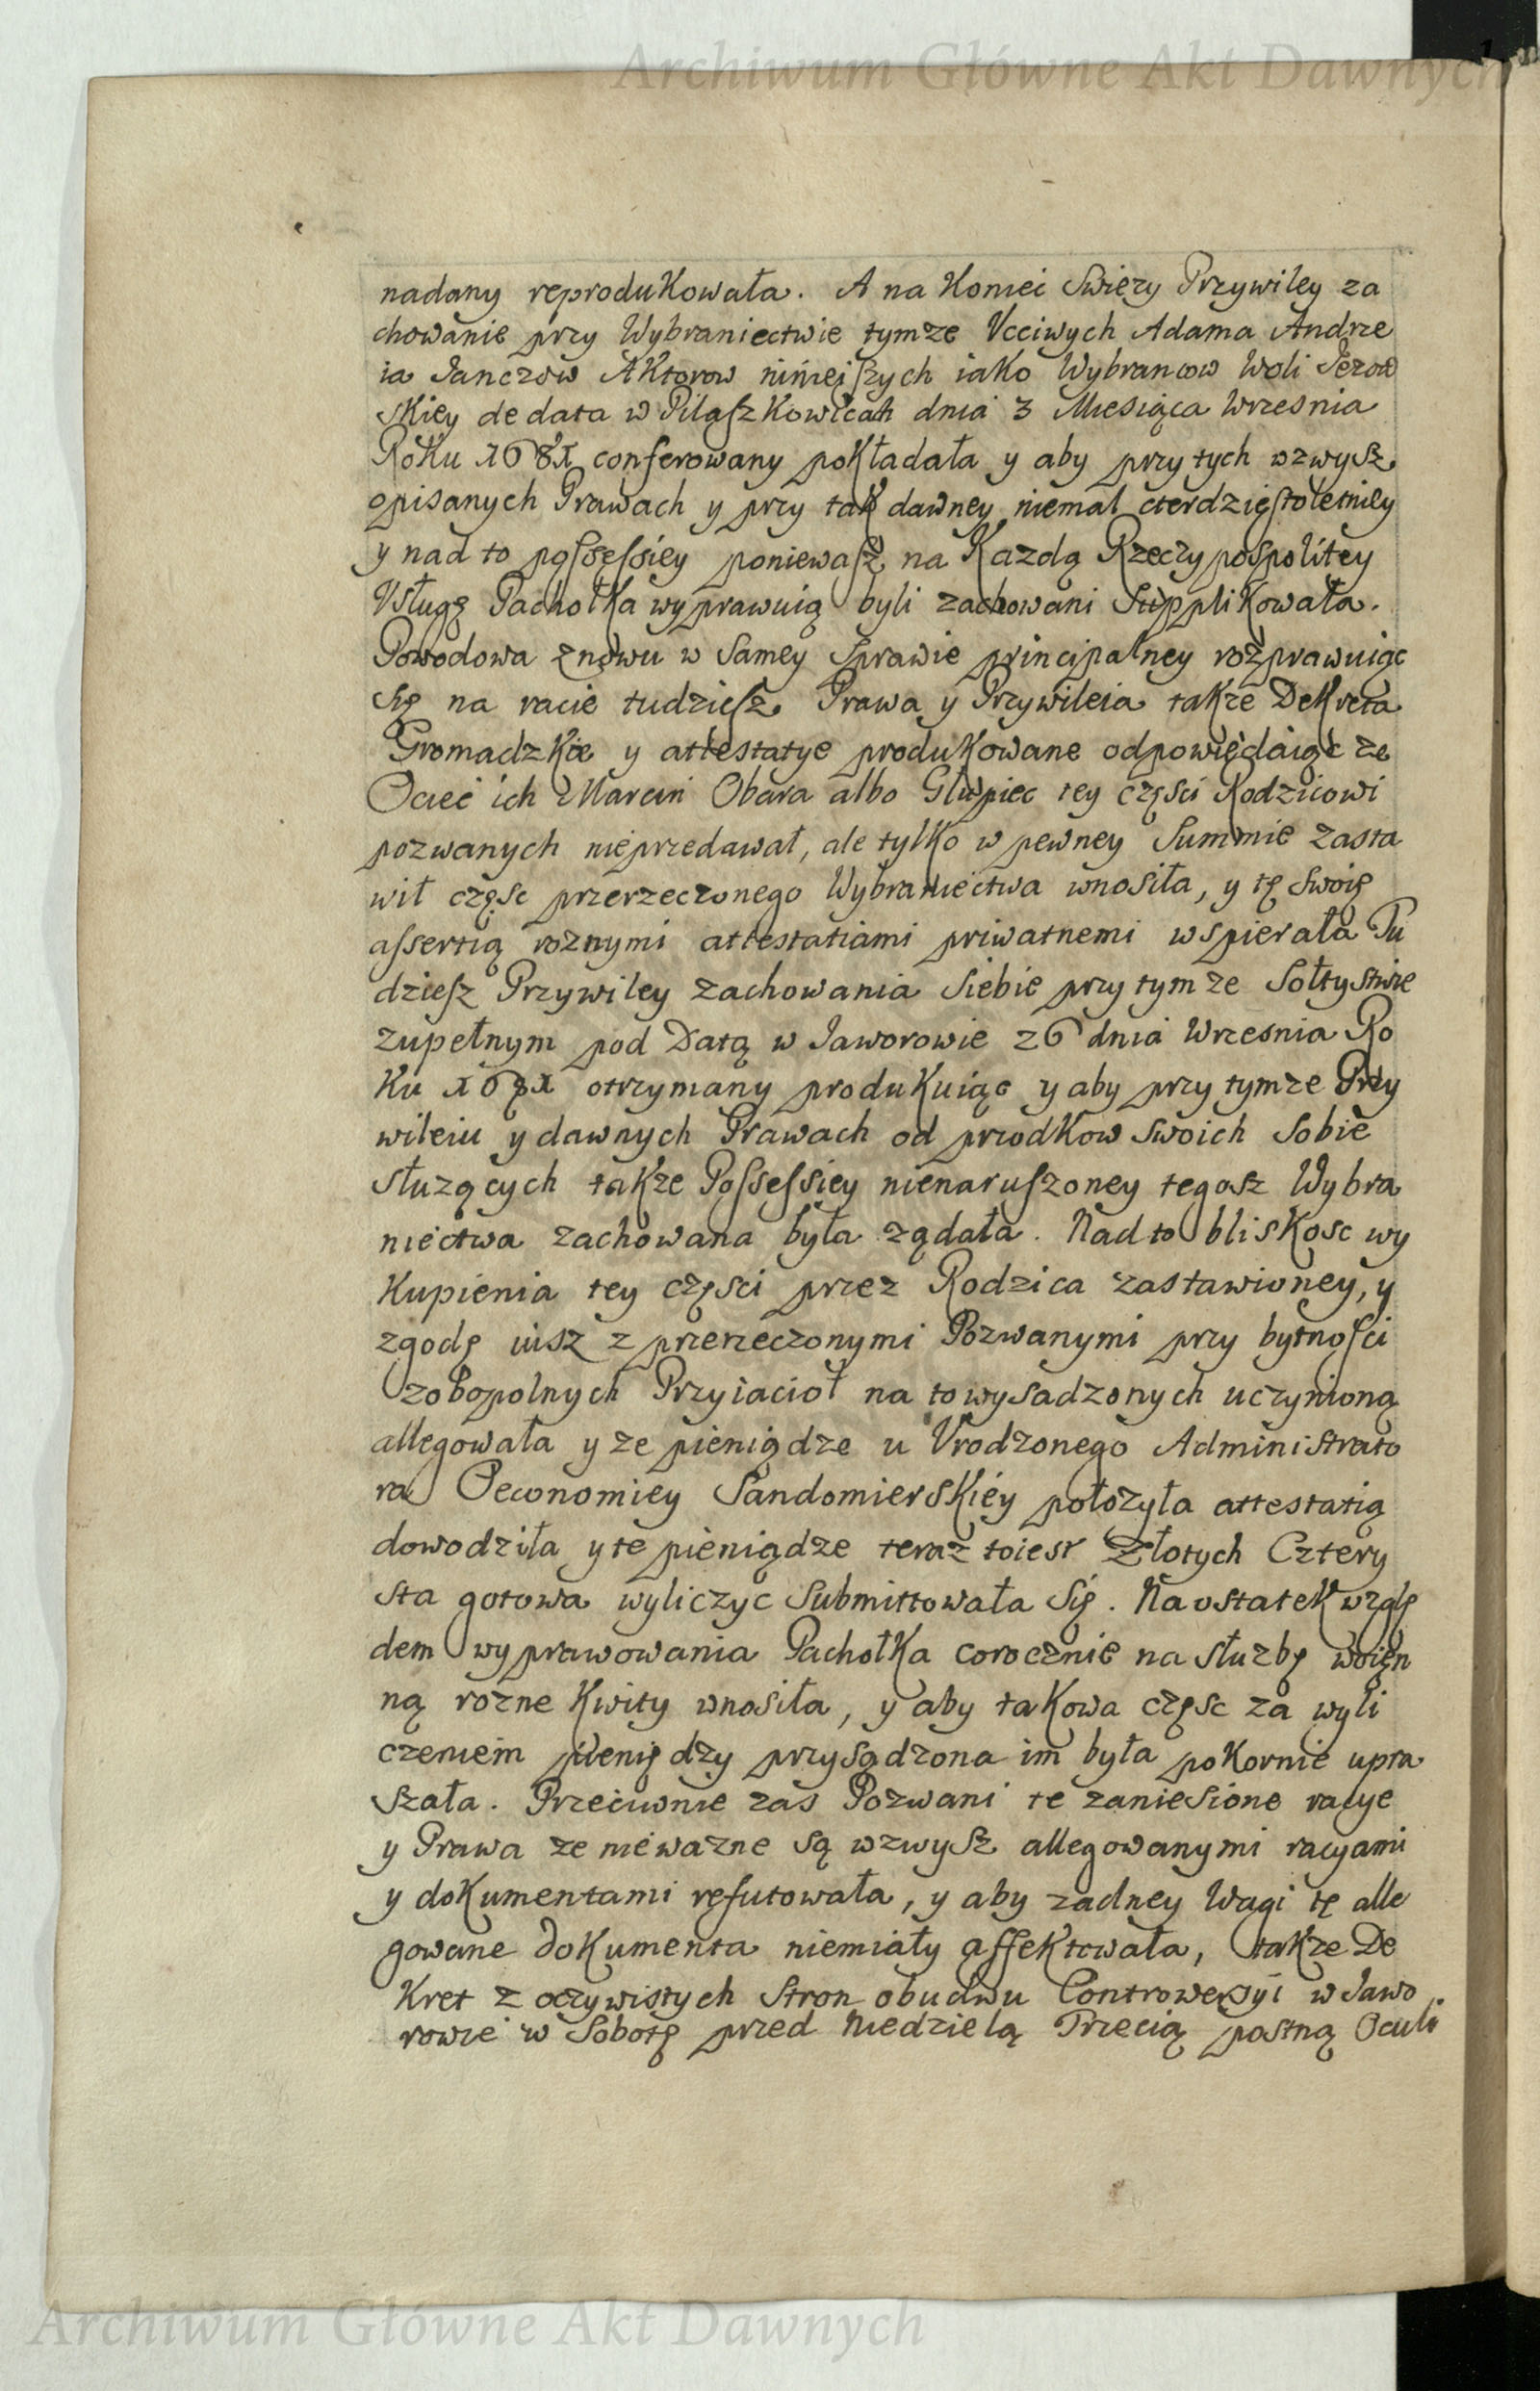 Archiwum Główne Akt Dawnych
nadany reprodukowała. A na Koniec Swiezy Przywiley za
chowanie przy Wybraniectwie tymze Vcciwych Adama Andrze
ia Janczow Aktorow ninieiszych iako Wybrancow Woli Jezow
skiey de data w Pilaszkowicach dnia 3 Miesiąca Wrzesnia
Roku 1681 conferowany pokładała y aby przy tych wzwysz
opisanych Prawach y przy tak dawney niemal cterdziestoletniey
y nad to possessiey poniewasz na Kazdą Rzeczypospolitey
Vsługę Pachołka wyprawuią byli zachowani Supplikowała.
Powodowa znowu w Samey Sprawie principalney rozprawuiąc
Się na racie tudziesz Prawa y Przywileia takze Dekreta
Gromadzkie y attestatye produkowane odpowiedaiąc ze
Ociec ich Marcin Obara albo Głupiec tey części Rodzicowi
pozwanych nieprzedawał, ale tylko w pewney Summie zasta
wił częsc przerzeczonego Wybraniectwa wnosiła, y tę swoię
assertią roznymi attestatiami priwatnemi wspierała Tu
dziesz Przywiley zachowania Siebie przy tymze Sołtystwie
zupełnym pod Datą w Jaworowie 26 dnia Wrzesnia Ro
ku 1681 otrzymany produkuiąc y aby przy tymze Przy
wileiu y dawnych Prawach od przodkow Swoich Sobie
słuzących takze Possessiey nienaruszoney tegosz Wybra
niectwa zachowana była ządała. Nad to bliskosc wy
kupienia tey części przez Rodzica zastawioney, y
zgodę iusz z przerzeczonymi Pozwanymi przy bytności
zobopolnych Przyiacioł na to wysadzonych uczynioną
allegowała y ze pieniądze u Vrodzonego Administrato
ra Oeconomiey Sandomierskiey połozyła attestatią
dowodziła y te pieniądze teraz toiest Złotych Cztery
sta gotowa wyliczyc Submittowała Się. Na ostatek wzglę
dem wyprawowania Pachołka corocznie na słuzbę woięn
ną rozne Kwity wnosiła, y aby takowa częsc za wyli
czeniem pieniędzy przysądzona im była pokornie upra
szała. Przeciwnie zas Pozwani te zaniesione racye
y Prawa ze niewazne są wzwysz allegowanymi racyami
y dokumentami refutowała, y aby zadney Wagi tę alle
gowane dokumenta niemiały affektowała, takze De
kret z oczywistych Stron obudwu Controwersyi w Jawo
rowie w Sobotę przed Niedzielą Trzecią postną Oculi
Archiwum Główne Akt Dawnych